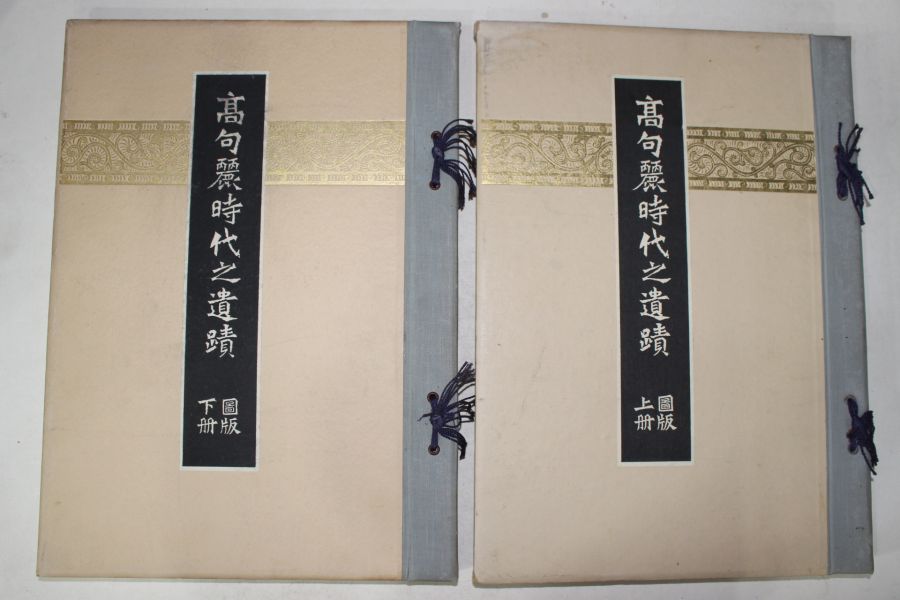 高句麗時代之遺蹟
圖版
上册
高句麗時代之遺蹟
圖版
下册